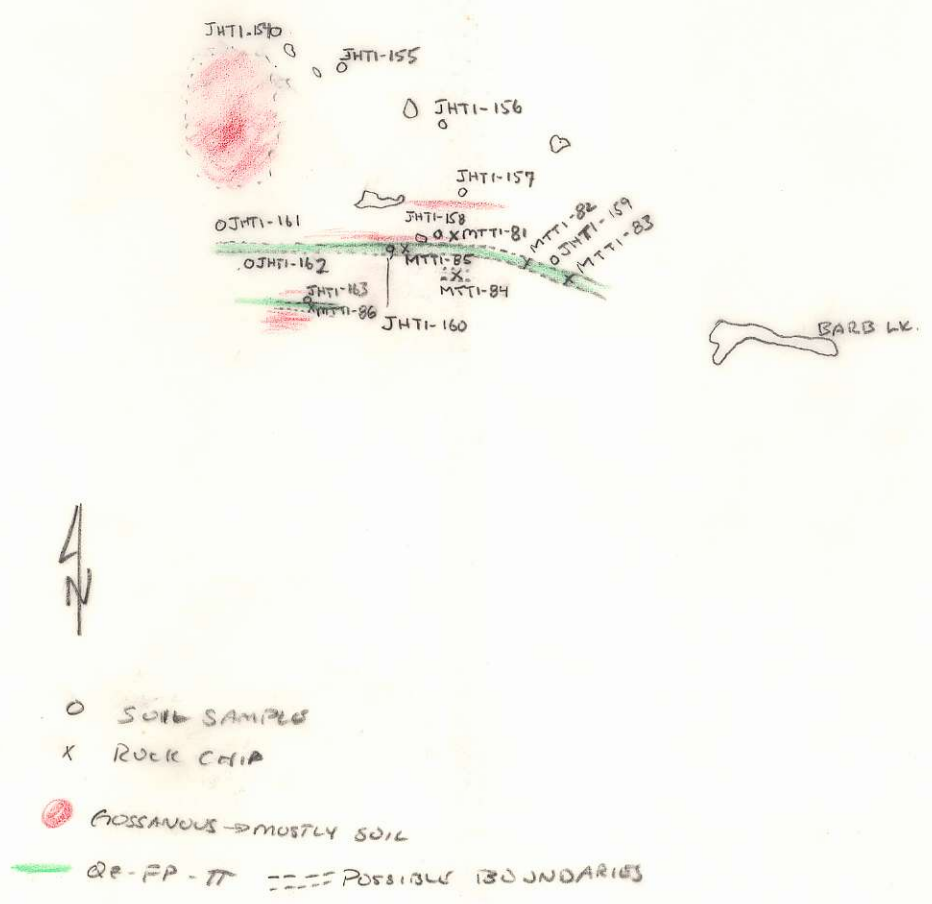 JHT1-154O
JHT1-155
JHT1-156
JHT1-157
JHT1-158
MTT1-81
MTT1-82
JHT1-159
MTT1-83
JHT1-161
JHT1-162
MTT1-85
MTT1-84
JHT1-163
MTT1-86
JHT1-160
BARB LK.
N
O SOIL SAMPLE
X ROCK CHIP
GOSSANOUS → MOSTLY SOIL
QZ-FP-π ==== POSSIBLE BOUNDARIES